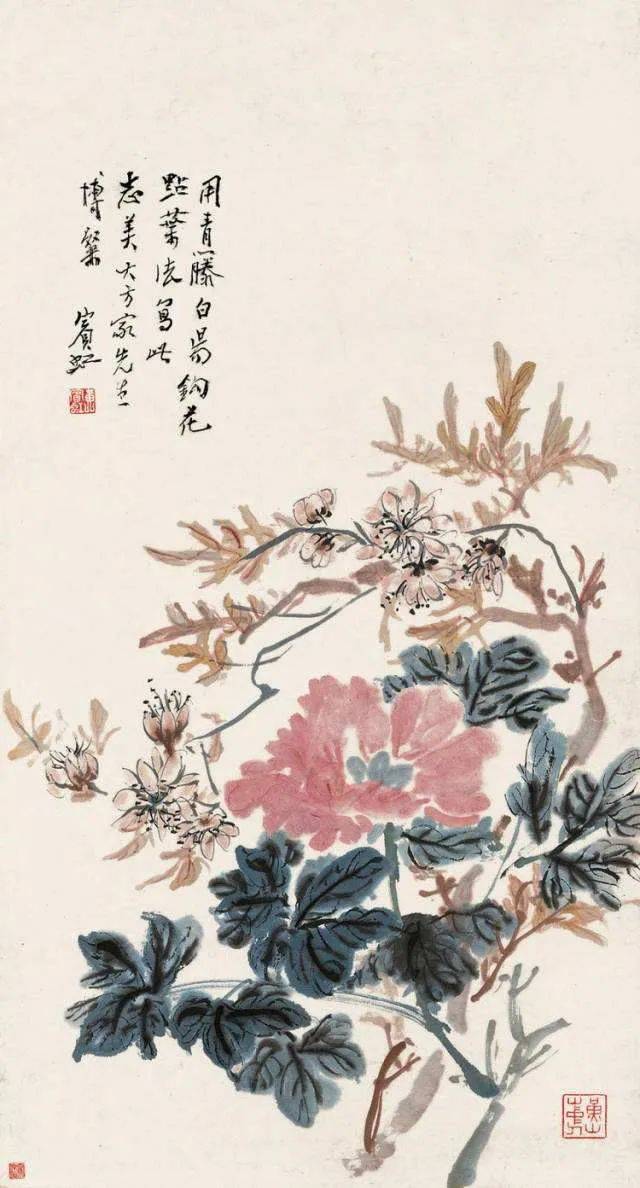 用青藤白易鉤花
點葉法寫此
志美大方家先生
博粲
賓虹